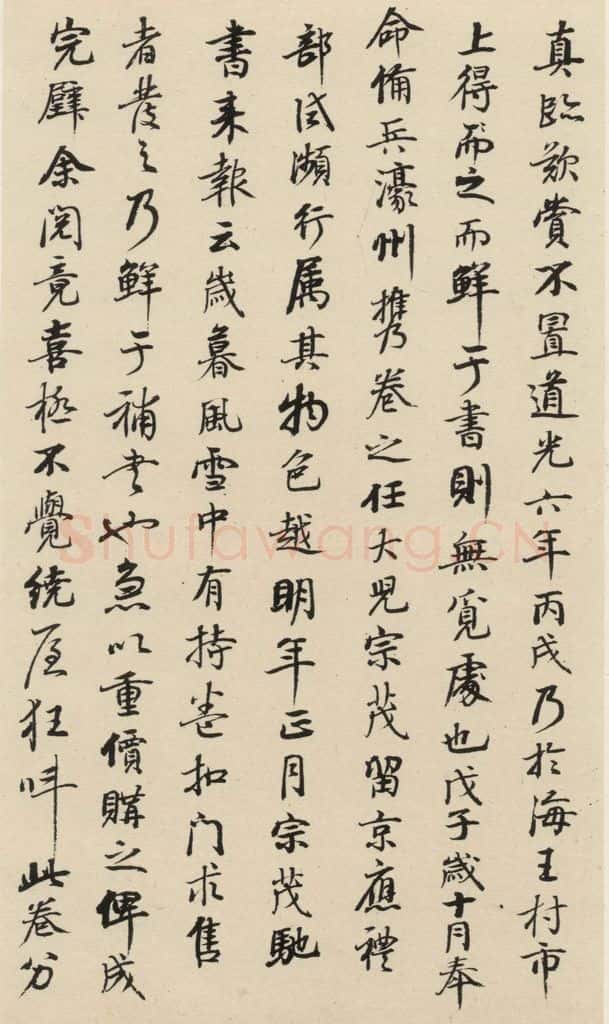 真臨歎賞不置道光六年丙戌乃於海王村市
上得而之而鮮于書則無覓處也戊子歲十月奉
命備兵濠州攜卷之任大兒宗茂留京應禮
部試瀕行属其物色越明年正月宗茂馳
書来報云歲暮風雪中有持卷扣门求售
者發之乃鮮于補書也急以重價購之俾成
完璧余閱竟喜極不覺繞屋狂呌此卷分
Shufawang.CN